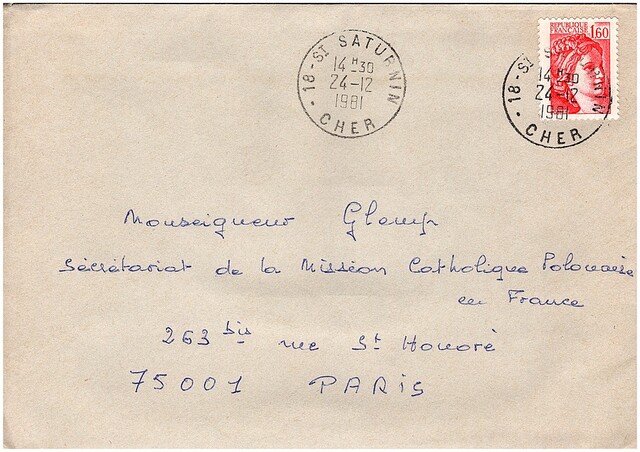 18 - ST SATURNIN
14 H 30
24-12
1981
CHER
REPUBLIQUE
FRANÇAISE
1,60
18 - ST SATURNIN
14 H 30
24-12
1981
CHER
Monseigneur Glemp
Sécrétariat de la Mission Catholique Polonaise
en France
263 bis rue St Honoré
75001 PARIS